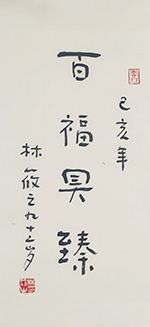 己亥年
百福具臻
林筱之九十二岁